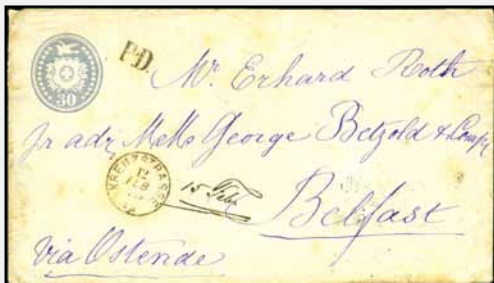 30
P.D.
Mr. Erhard Roth
pr adr Mess George Betzold & Comp
KREUZSTRASSE
12
FEB
15 Feb
Belfast
via Ostende